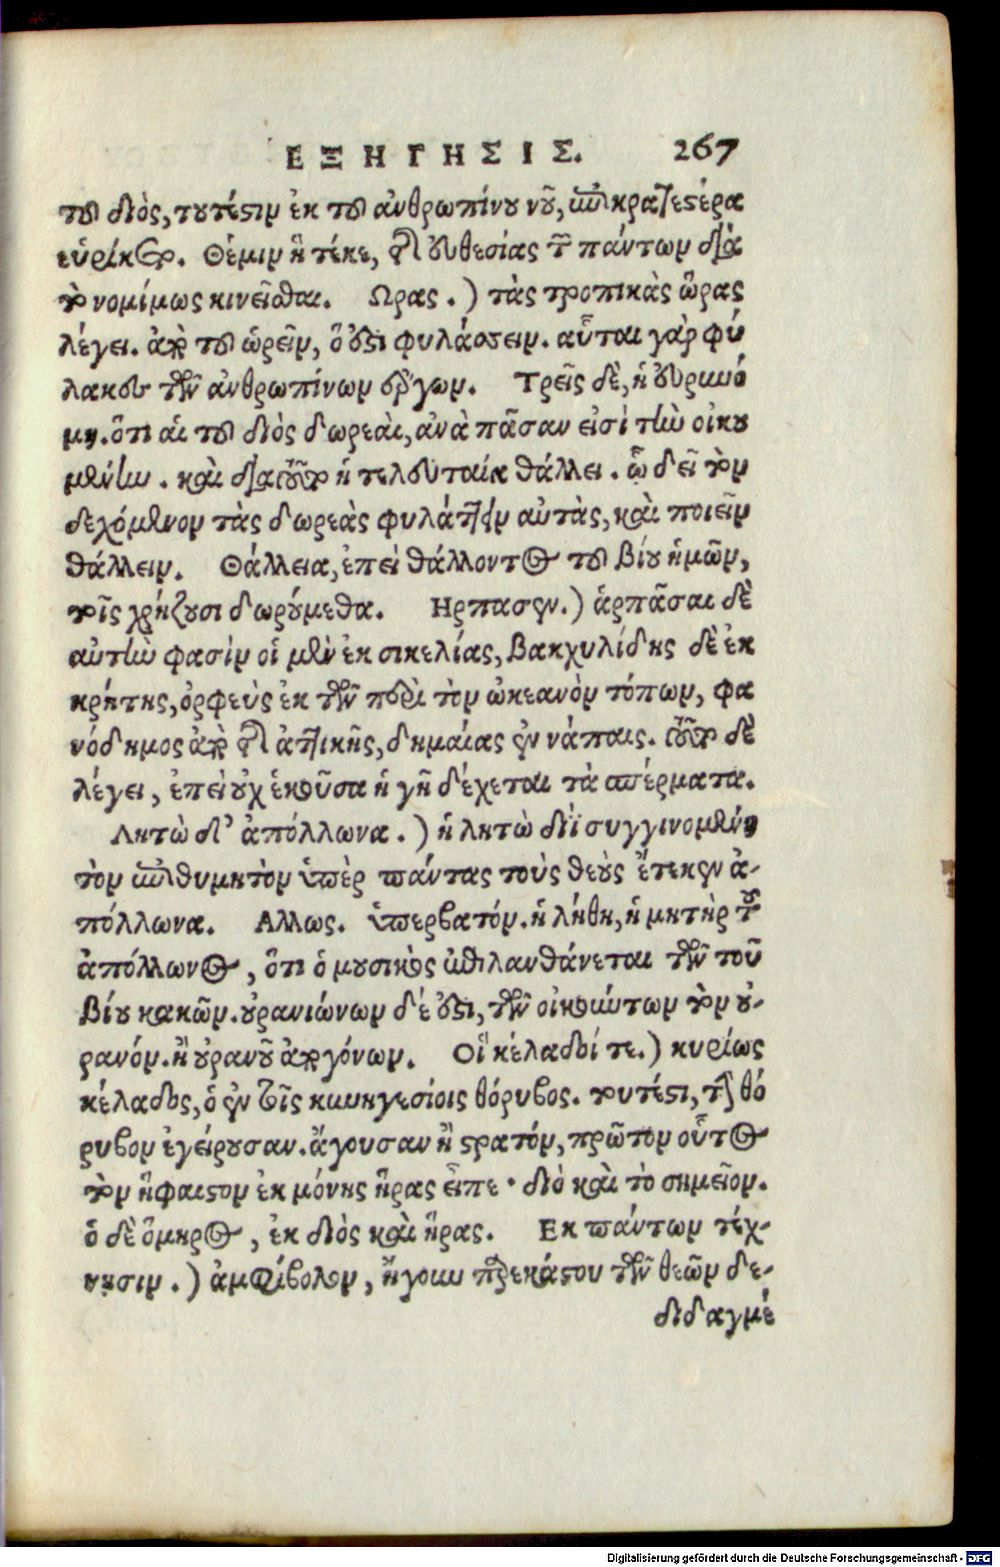 ΕΞΗΓΗΣΙΣ. 267
τοῦ διὸς, τουτέστιν ἐκ τοῦ ἀνθρωπίνου νοῦ, ἐπικρατεστέρα
εὑρίσκεται. Θέμιν ἢ τέκε, τῆς εὐθεσίας τῶν πάντων διὰ
τὸ νομίμως κινεῖσθαι. Ωρας.) τὰς τροπικὰς ὥρας
λέγει. ἀπὸ τοῦ ὡρεῖν, ὅ ἐστι φυλάσσειν. αὗται γὰρ φύ
λακες τῶν ἀνθρωπίνων ἔργων. Τρεῖς δὲ, ἡ εὐρυνό
μη. ὅτι αἱ τοῦ διὸς δωρεαὶ, ἀνὰ πᾶσαν εἰσὶ τὴν οἰκου
μένην. καὶ διὰ τοῦτο ἡ τελευταία θάλλει. ᾧ δεῖ τὸν
δεχόμενον τὰς δωρεὰς φυλάττειν αὐτὰς, καὶ ποιεῖν
θάλλειν. Θάλλεια, ἐπεὶ θάλλοντος τοῦ βίου ἡμῶν,
τοῖς χρήζουσι δωρούμεθα. Ηρπασεν.) ἁρπᾶσαι δὲ
αὐτὴν φασὶν οἱ μὲν ἐκ σικελίας, βακχυλίδης δὲ ἐκ
κρήτης, ὀρφεὺς ἐκ τῶν περὶ τὸν ὠκεανὸν τόπων, φα
νόδημος ἀπὸ τῆς ἀττικῆς, δημαίας ἐν νάπαις. τοῦτο δὲ
λέγει, ἐπεὶ οὐχ ἑκοῦσα ἡ γῆ δέχεται τὰ σπέρματα.
Λητὼ δ' ἀπόλλωνα.) ἡ λητὼ διῒ συγγινομένη
τὸν ἐπιθυμητὸν ὑπὲρ πάντας τοὺς θεοὺς ἔτεκεν ἀ-
πόλλωνα. Αλλως. ὑπερβατόν. ἡ λήθη, ἡ μητὴρ τοῦ
ἀπόλλωνος, ὅτι ὁ μουσικὸς ἐπιλανθάνεται τῶν τοῦ
βίου κακῶν. οὐρανιώνων δέ ἐστι, τῶν οἰκούντων τὸν οὐ-
ρανόν. ἢ οὐρανοῦ ἀπογόνων. Οἵ κέλαδοί τε.) κυρίως
κέλαδος, ὁ ἐν τοῖς κυνηγεσίοις θόρυβος. τουτέστι, τὴν θό
ρυβον ἐγείρουσαν. ἄγουσαν ἢ στρατόν, πρῶτον οὗτος
τὸν ἥφαιστον ἐκ μόνης ἥρας εἶπε· διὸ καὶ τὸ σημεῖον.
ὁ δὲ ὅμηρος, ἐκ διὸς καὶ ἥρας. Εκ πάντων τέχ-
νησιν.) ἀμφίβολον, ἤγουν παρ' ἑκάστου τῶν θεῶν δε-
διδαγμέ
Digitalisierung gefördert durch die Deutsche Forschungsgemeinschaft - DFG